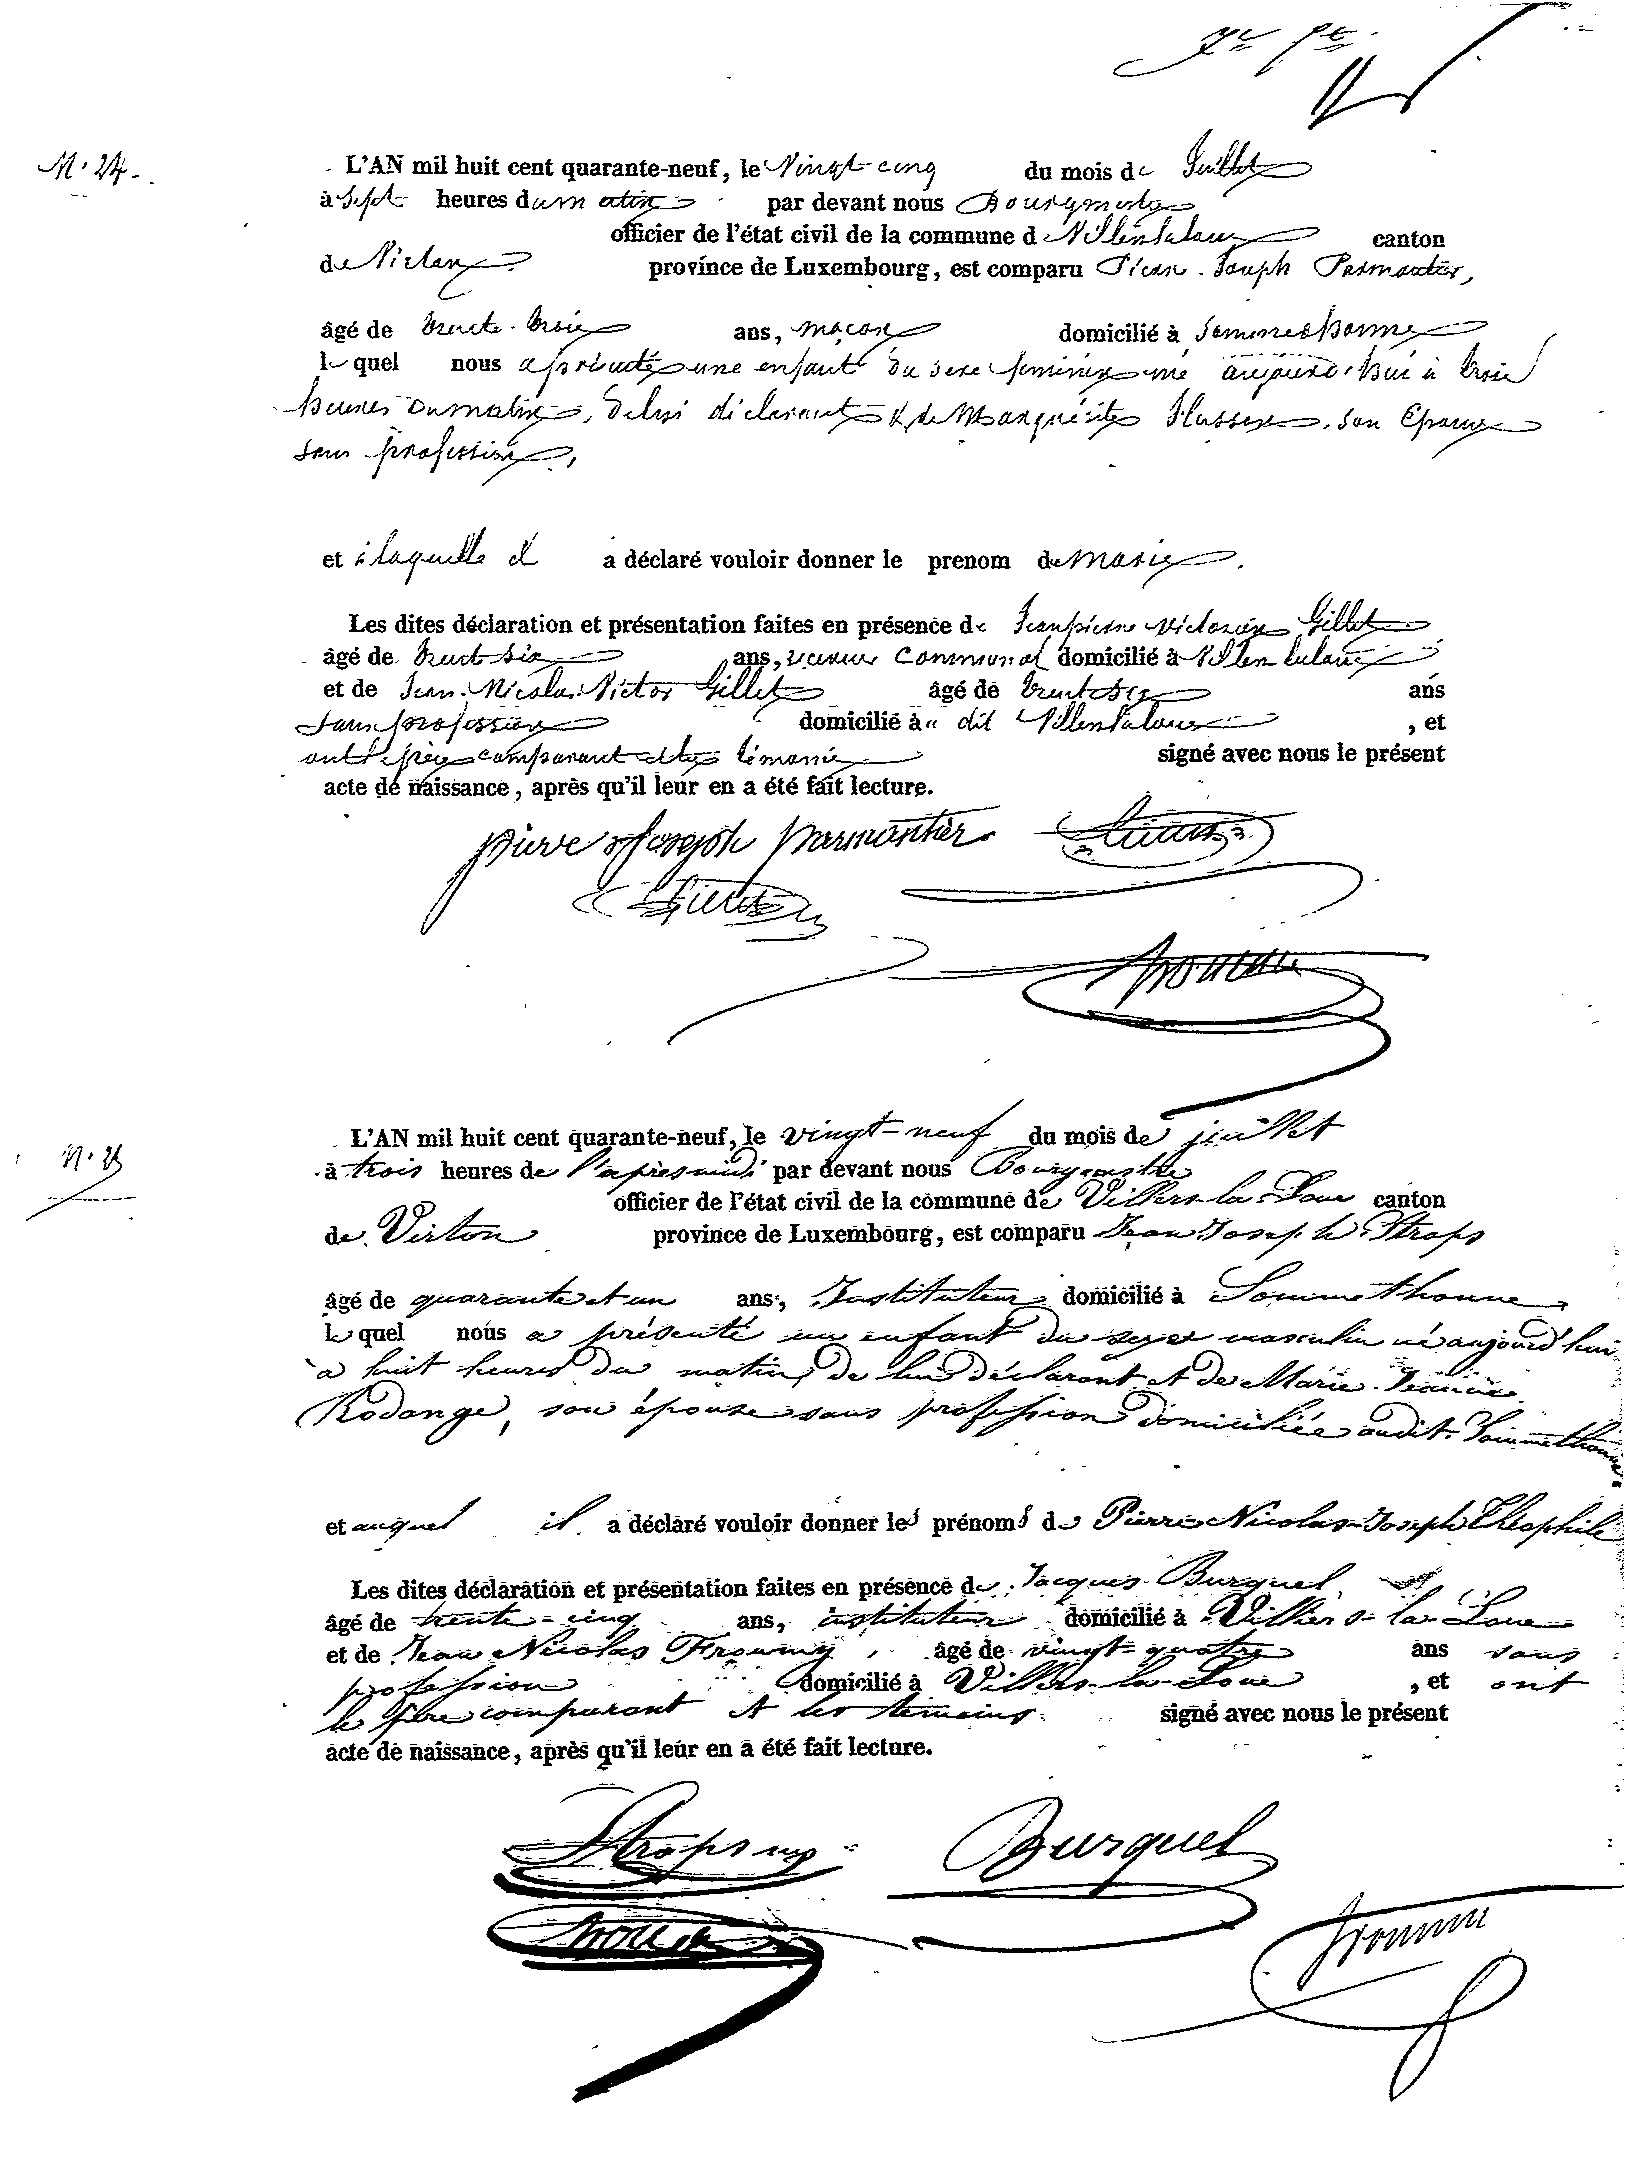 N. 24.
L'AN mil huit cent quarante-neuf, le Vingt cinq du mois de Juillet
à sept heures du matin par devant nous Bourgmestre
officier de l'état civil de la commune d Villerslaloue canton
de Virton province de Luxembourg, est comparu Pierre Joseph Parmentier,
âgé de trente-trois ans, maçon domicilié à Sommethonne
lequel nous a présenté une enfant du sexe féminin né aujourd'hui à trois
heures du matin, de lui déclarant & de Marguérite son Epouse
sans profession,
et à laquelle il a déclaré vouloir donner le prenom de Marie.
Les dites déclaration et présentation faites en présence de Jean pierre Victorien Gillet
âgé de trente six ans, receveur communal domicilié à Villerslaloue
et de Jean Nicolas Victor Gillet âgé de trente six ans
sans profession domicilié à dit Villerslaloue, et
ont le père comparant et les témoins signé avec nous le présent
acte de naissance, après qu'il leur en a été fait lecture.
pierre Joseph parmentier
N. 25
L'AN mil huit cent quarante-neuf, le vingt-neuf du mois de juillet
à trois heures de l'apresmidi par devant nous Bourgmestre
officier de l'état civil de la commune de Villers-la-Loue canton
de Virton province de Luxembourg, est comparu Jean Joseph Straps
âgé de quarante et un ans, Instituteur domicilié à Sommethonne
lequel nous a présenté un enfant du sexe masculin né aujourd'hui
à huit heures du matin, de lui déclarant et de Marie Jeanne
Rodange, son épouse sans profession domiciliée audit Sommethonne
et auquel il a déclaré vouloir donner les prénoms de Pierre Nicolas Joseph Théophile
Les dites déclaration et présentation faites en présence de Jacques Burquel
âgé de trente-cinq ans, instituteur domicilié à Villers-la-Loue
et de Jean Nicolas âgé de vingt-quatre ans sans
profession domicilié à Villers-la-Loue, et ont
le père comparant et les témoins signé avec nous le présent
acte de naissance, après qu'il leur en a été fait lecture.
Straps Burquel